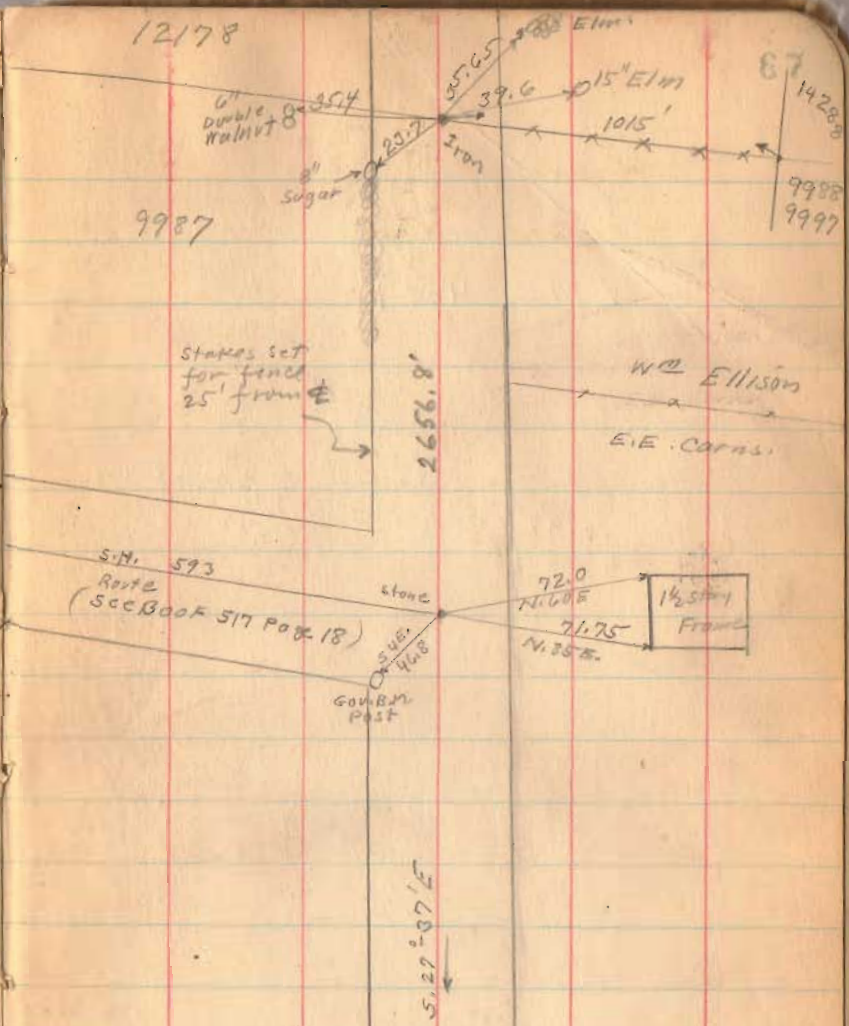 12178
Elm.
35.65
15" Elm
39.6
6"
Double
Walnut
35.4
1015'
14288
23.7
Iron
8"
Sugar
9988
9997
9987
Stakes set
for fence
25' from ℄
2656.8'
Wm Ellison
E.E. Carns.
S.H. 593
Route
(See Book 517 Page 18)
stone
72.0
N.60E
71.75
N.35E.
1½ Story
Frame
S4E.
46.8
Gov. B.M
Post
S.27°-37'E